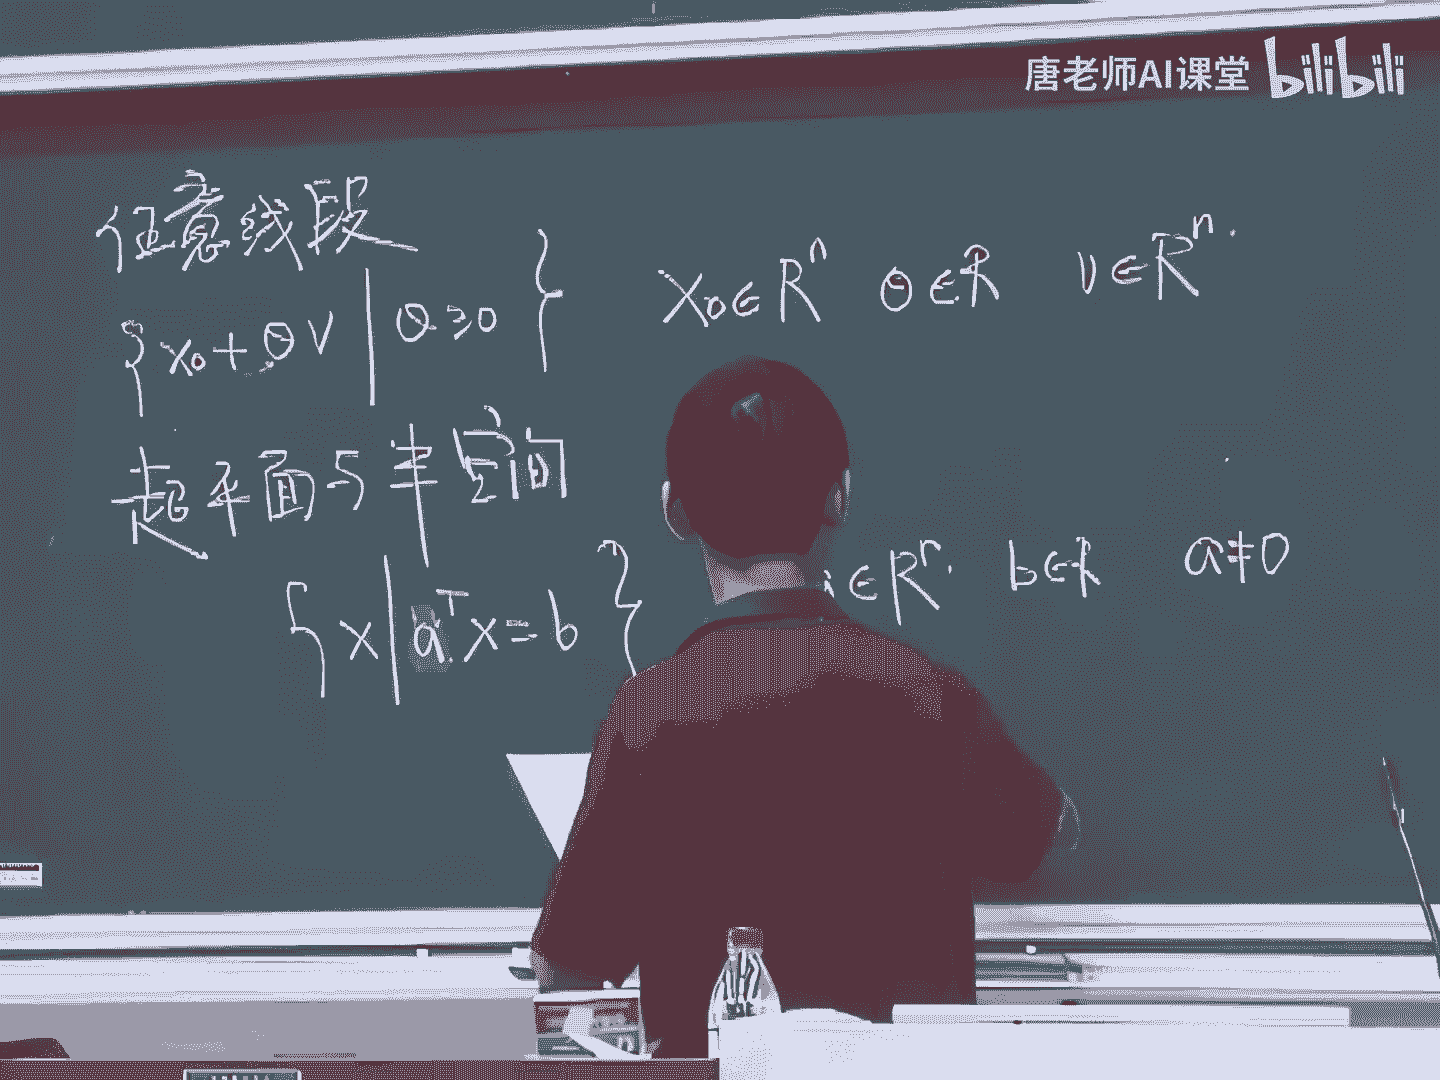 唐老师AI课堂 bilibili
任意线段
{x₀+θv | θ≥0} x₀∈Rⁿ θ∈R v∈Rⁿ.
超平面与半空间
{x | aᵀx=b} ∈Rⁿ. b∈R a≠0